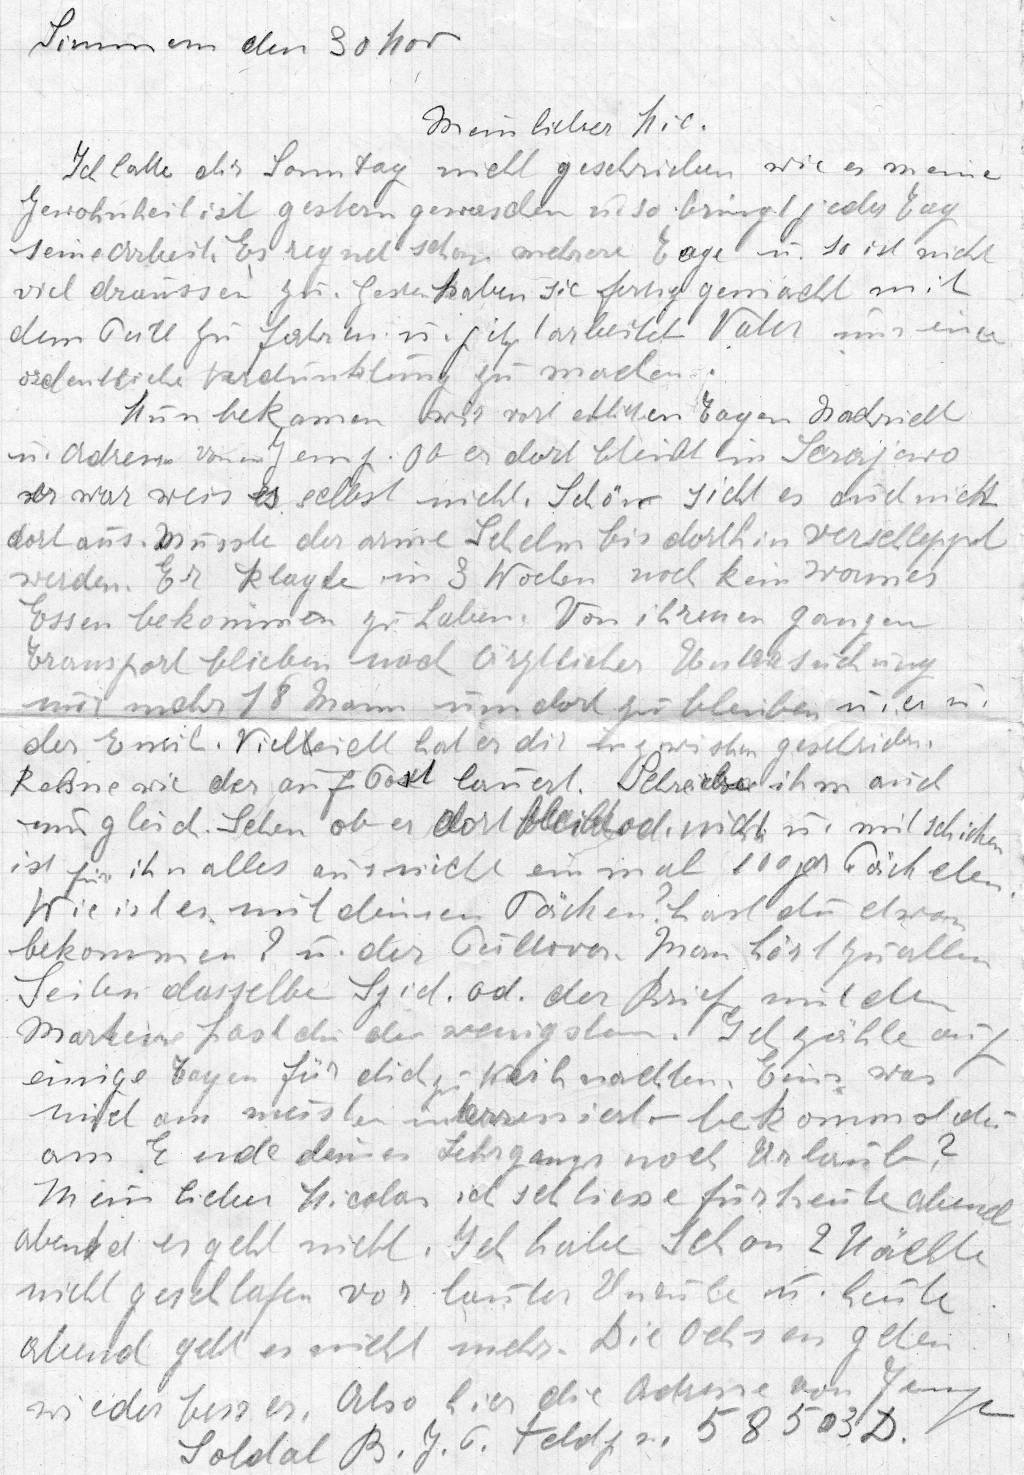 Simmern den 30 Nov
Mein lieber Nic.
Ich hatte dir Sonntag nicht geschrieben wie es meine
Gewohnheit ist gestern geworden u. so bringt jeder Tag
seine Arbeit. Es regnet schon mehrere Tage u. so ist nicht
viel draussen zu. Gestern haben sie fertig gemacht mit
dem zu fahren u. jetzt arbeitet Vater um eine
ordentliche Verdunklung zu machen.
Nun bekamen wir vor etlichen Tagen Nachricht
u. Adresse von Jemp. Ob er dort bleibt in Serajewo
er war weis es selbst nicht. Schön sieht es auch nicht
dort aus. Musste der arme Schelm bis dorthin verschleppt
werden. Er klagte in 3 Wochen noch kein warmes
Essen bekommen zu haben. Von ihrenen ganzen
Transport blieben nach ärztlicher Untersuchung
nur mehr 18 Mann um dort zu bleiben u. er u.
der Emil. Vielleicht hat er dir inzwischen geschrieben.
Rechne wie der auf Post lauert. Schreibe ihm auch
mal gleich. Sehen ob er dort bleibt od. nicht u. mit schicken
ist für ihn alles aus nicht einmal 100 gr Päckchen.
Wie ist es mit deinen Päcken? hast du etwas
bekommen? u. der Pullover. Man hört zu allen
Seiten dasselbe Lied. od. der Brief mit den
Marken hast du die wenigstens. Ich zähle auf
einige Tagen für dich zu Weihnachten. Eins was
mich am meisten interressiert bekommst du
am Ende deines Lehrgangs noch Urlaub?
Mein lieber Nicolas ich schliesse für heute abend
abend es geht nicht. Ich habe schon 2 Nächte
nicht geschlafen vor lauter Unruhe u. heute
abend geht es nicht mehr. Die Ochsen gehen
wieder besser. Also hier die Adresse von Jemp
Soldat B. J. P. Feldp n. 58503 D.